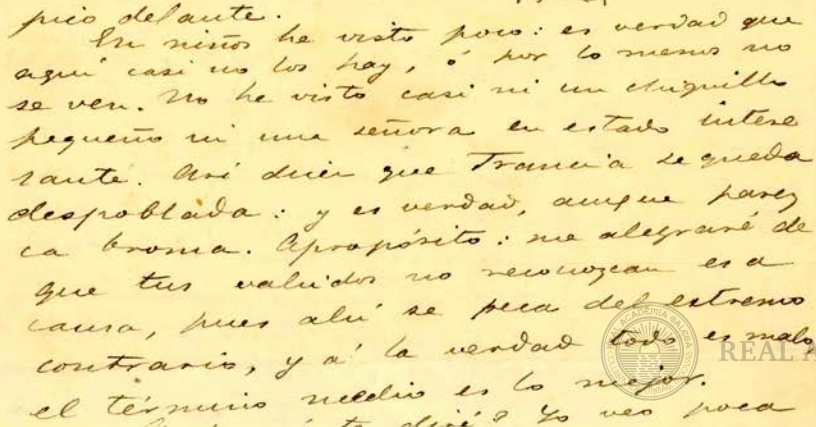 pico delante.
En niños he visto poco: es verdad que
aquí casi no los hay, ó por lo menos no
se ven. No he visto casi ni un chiquillo
pequeño ni una señora en estado intere
sante. Así dicen que Francia se queda
despoblada: y es verdad, aunque parez
ca broma. Apropósito: me alegraré de
que tus vahidos no reconozcan esa
causa, pues ahí se peca del estremo
contrario, y á la verdad todo es malo,
el término medio es lo mejor.
te diré? Yo veo poca
REAL ACADEMIA GALEGA
REAL A